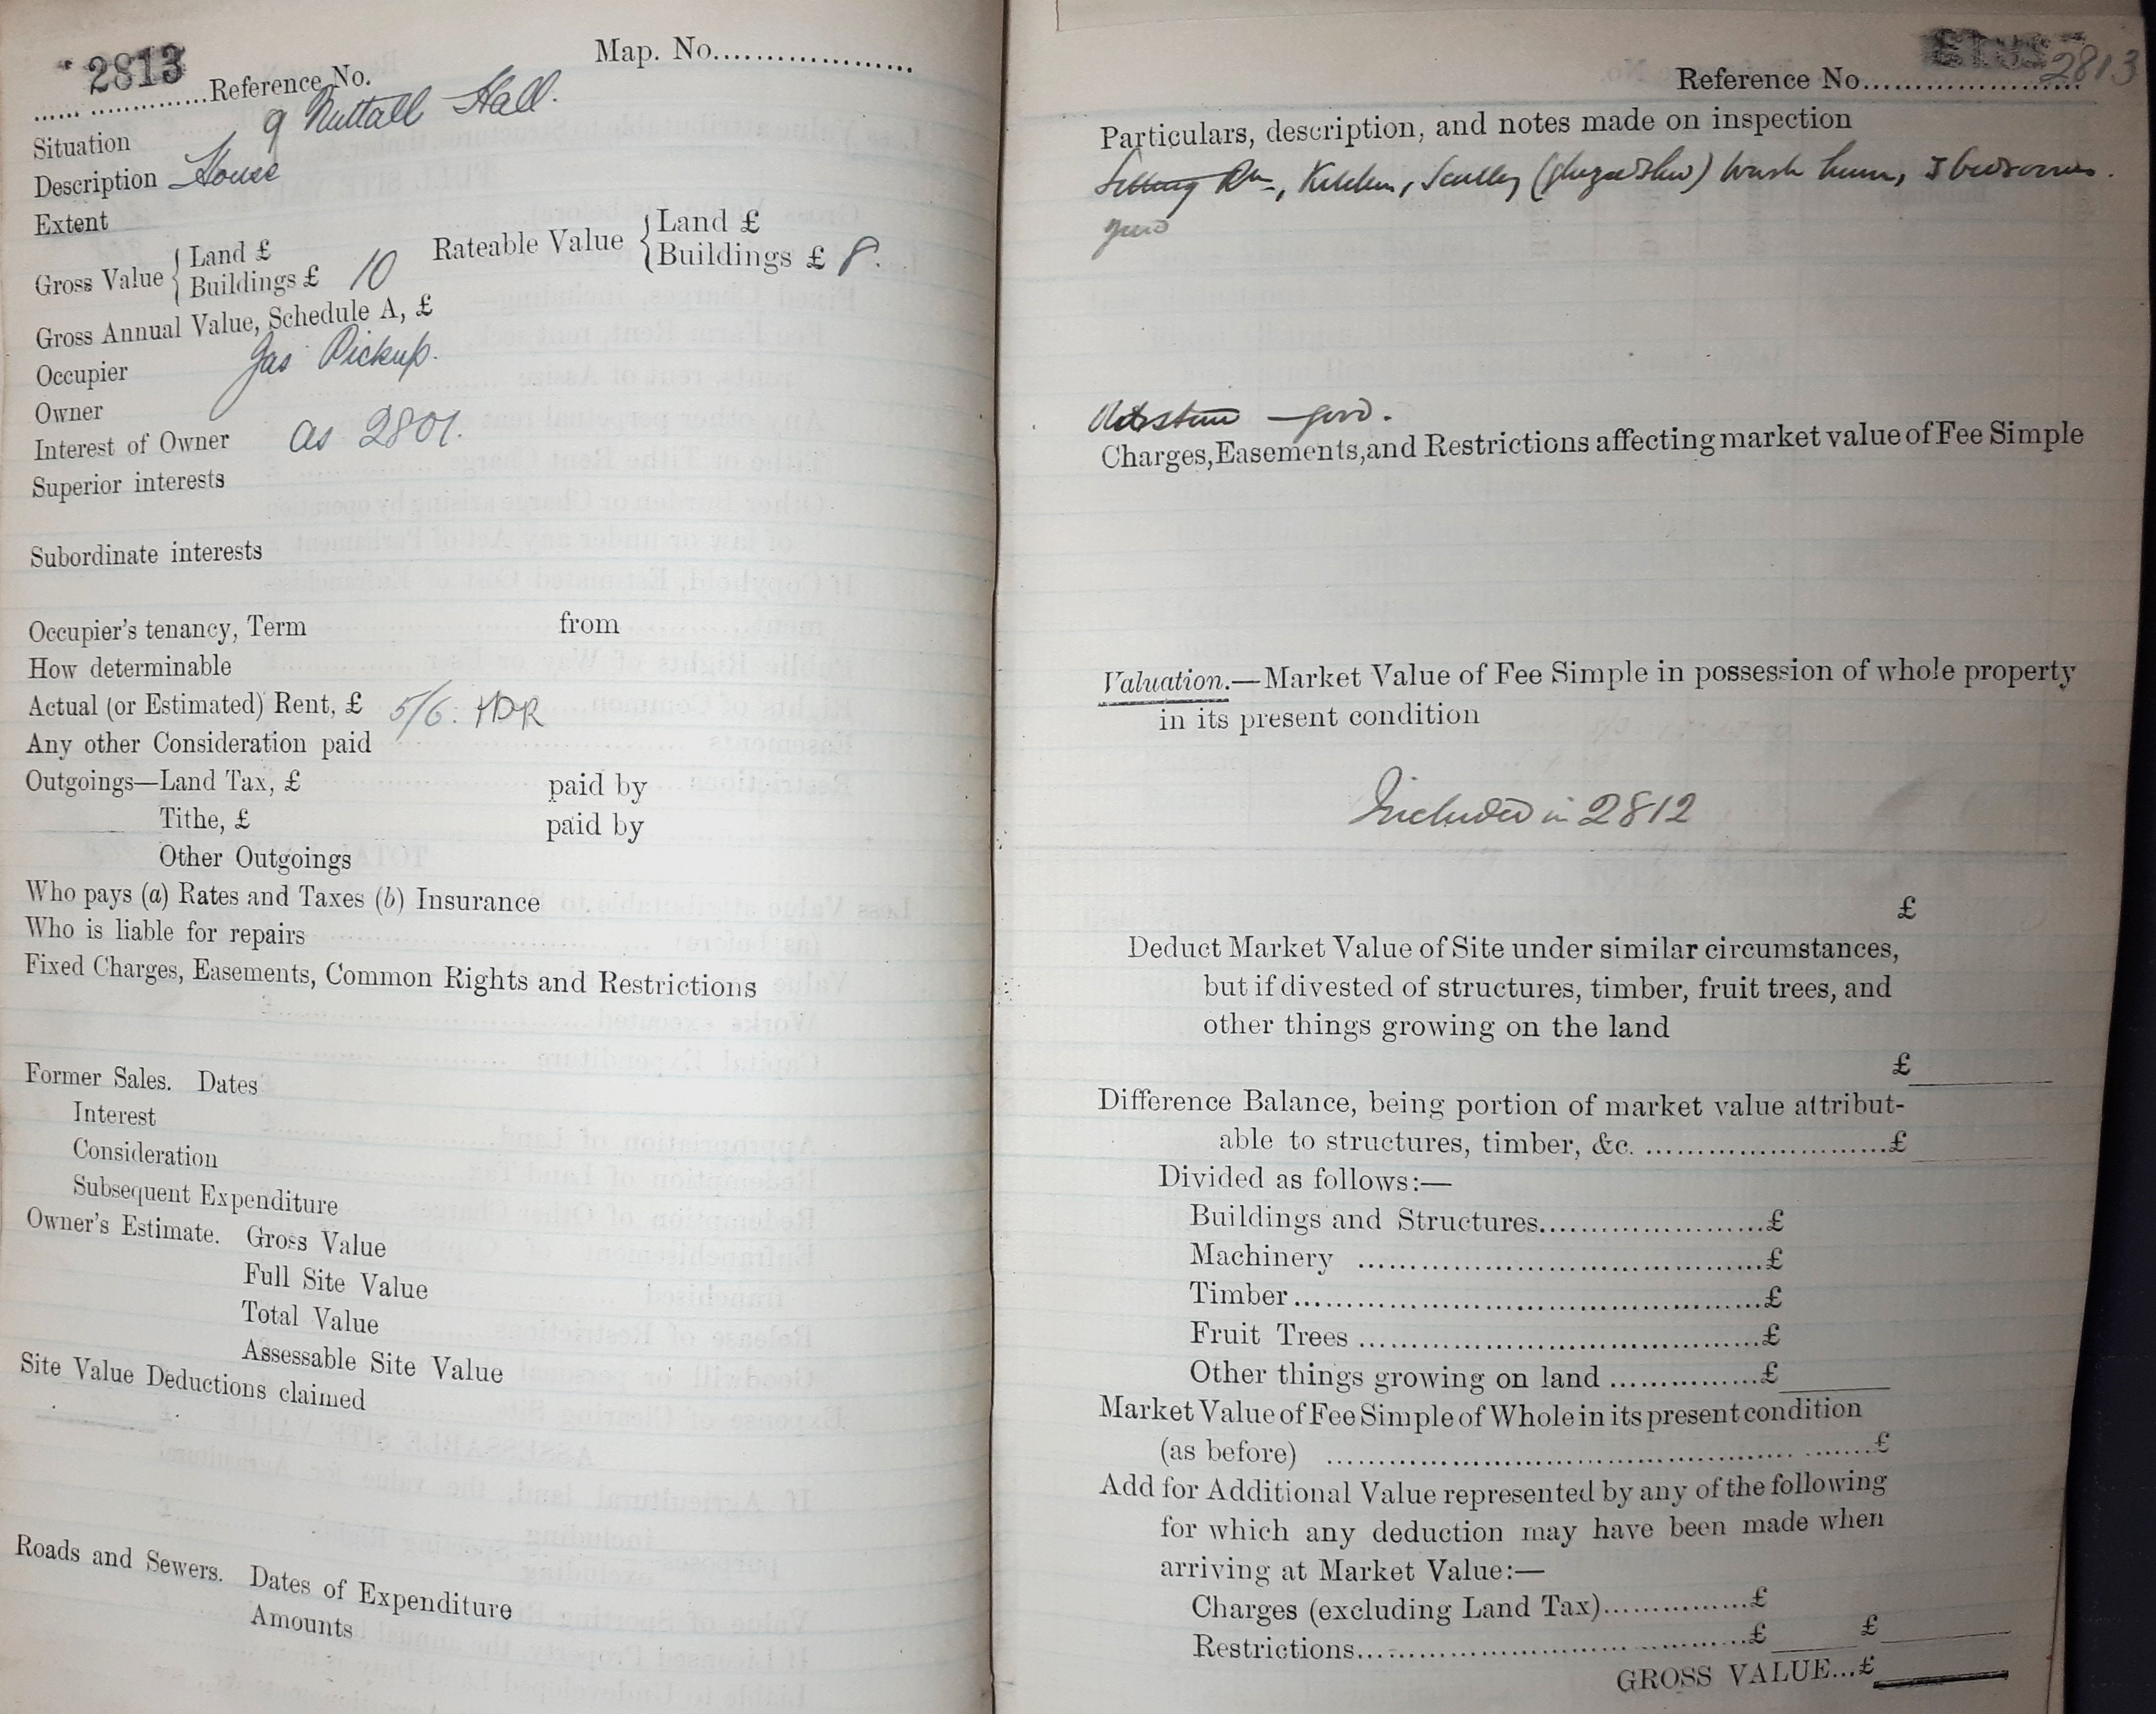 2813
Reference No.
Map. No.
Situation 9 Nuttall Hall.
Description House
Extent
Gross Value { Land £
Buildings £ 10
Rateable Value { Land £
Buildings £ 8.
Gross Annual Value, Schedule A, £
Occupier Jas Pickup.
Owner
Interest of Owner as 2801.
Superior interests
Subordinate interests
Occupier's tenancy, Term from
How determinable
Actual (or Estimated) Rent, £ 5/6.
Any other Consideration paid
Outgoings—Land Tax, £ paid by
Tithe, £ paid by
Other Outgoings
Who pays (a) Rates and Taxes (b) Insurance
Who is liable for repairs
Fixed Charges, Easements, Common Rights and Restrictions
Former Sales. Dates
Interest
Consideration
Subsequent Expenditure
Owner's Estimate. Gross Value
Full Site Value
Total Value
Assessable Site Value
Site Value Deductions claimed
Roads and Sewers. Dates of Expenditure
Amounts
Reference No. 2813
Particulars, description, and notes made on inspection
Sitting Rm, Kitchen, Scullery Wash house, 3 bedrooms.
good
good.
Charges, Easements, and Restrictions affecting market value of Fee Simple
Valuation.—Market Value of Fee Simple in possession of whole property
in its present condition
Included in 2812
£
Deduct Market Value of Site under similar circumstances,
but if divested of structures, timber, fruit trees, and
other things growing on the land
£
Difference Balance, being portion of market value attribut-
able to structures, timber, &c. £
Divided as follows:—
Buildings and Structures £
Machinery £
Timber £
Fruit Trees £
Other things growing on land £
Market Value of Fee Simple of Whole in its present condition
(as before) £
Add for Additional Value represented by any of the following
for which any deduction may have been made when
arriving at Market Value:—
Charges (excluding Land Tax) £
Restrictions £ £
GROSS VALUE... £